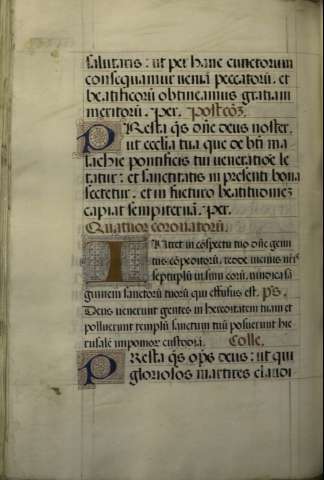 salutaris: ut per hanc cunctorum
consequamur veniā peccatorū. et
beatificorū obtineamus gratiam
meritorū. Per. Postcō3.
PResta qs oñe deus noster.
ut ecclia tua que de bti ma
lachie pontificis tui veneratiōe le
tatur: et sanctitatis in presenti bona
sectetur. et in futuro beatitudinez
capiat sempiternā. Per.
Quatuor coronatorū.
INtret in cōspectu tuo oñe gemi
tus cōpeditorū, redde vicinis nr̄is
septuplū in sinu eorū, vindica sā
guinem sanctorū tuorū qui effusus est. ps.
Deus venerunt gentes in hereditatem tuam et
polluerunt templū sanctum tuū posuerunt hie
rusalē in pomor custodiā. Colle.
PResta qs ops deus: ut qui
gloriosos martires claudi